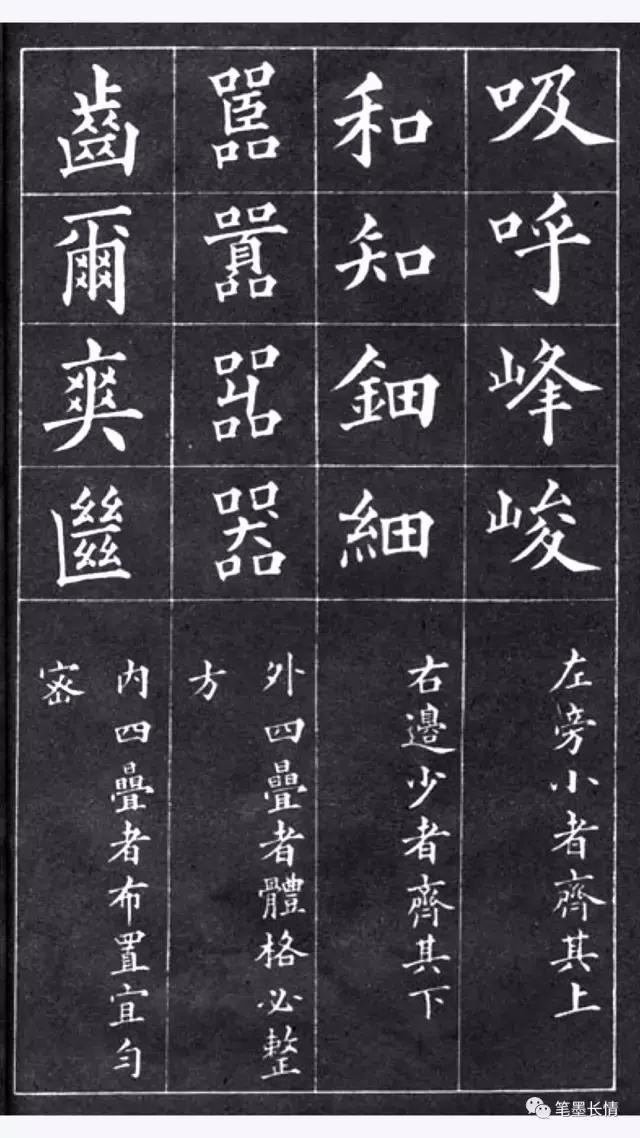 吸呼峰峻
左旁小者齊其上
和知鈿細
右邊少者齊其下
嚚囂嘂器
外四疊者體格必整
方
齒爾爽㡭
內四疊者布置宜勻
密
笔墨长情